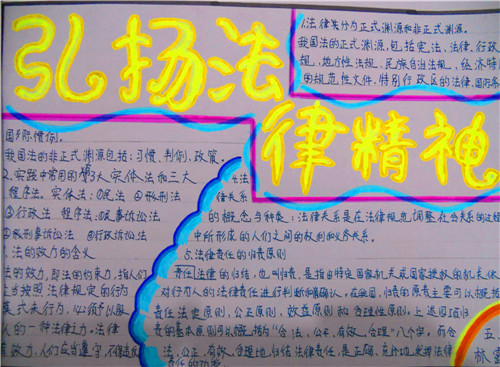 弘扬法
律精神
1.法律渊源分为正式渊源和非正式渊源。
我国法的正式渊源,包括宪法、法律、行政
规、地方性法规、民族自治法规、经济特
的规范性文件。特别行政区的法律、国际条
国际惯例。
我国法的非正式渊源包括:习惯、判例、政策。
2.实践中常用的 三大实体法和三大
程序法。实体法:①民法 ②刑法
③行政法 程序法:①民事诉讼法
②刑事诉讼法 ③行政诉讼法
法的效力的含义
法的效力,即法的约束力,指人们
应当按照法律规定的行为
模式来行为,必须予以服
人的一种法律之力。法律
有效力,人们应当遵守
法律关系
的概念与种类:法律关系是在法律规范调整社会关系的过程
中所形成的人们之间的权利和义务关系。
5.法律责任的归责原则
责任法律的归结,也叫归责,是指由特定国家机关或国家授权的机关依
对行为人的法律责任进行判断和确认。在我国,归责的原则主要可以概括
责任法定原则、公正原则、效益原则和合理性原则。上述四项归
责的基本原则可以概括为“合法、公正、有效、合理”八个字。而合
法、公正、有效、合理地归结法律责任,是正确
责任的功能。
五